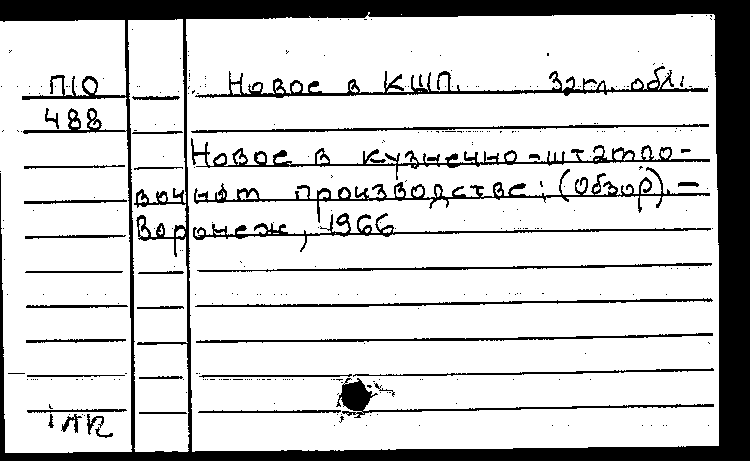 П10 Новое в КШП. Загл. обл.
488
Новое в кузнечно-штампо-
вочном производстве: (Обзор). –
Воронеж, 1966